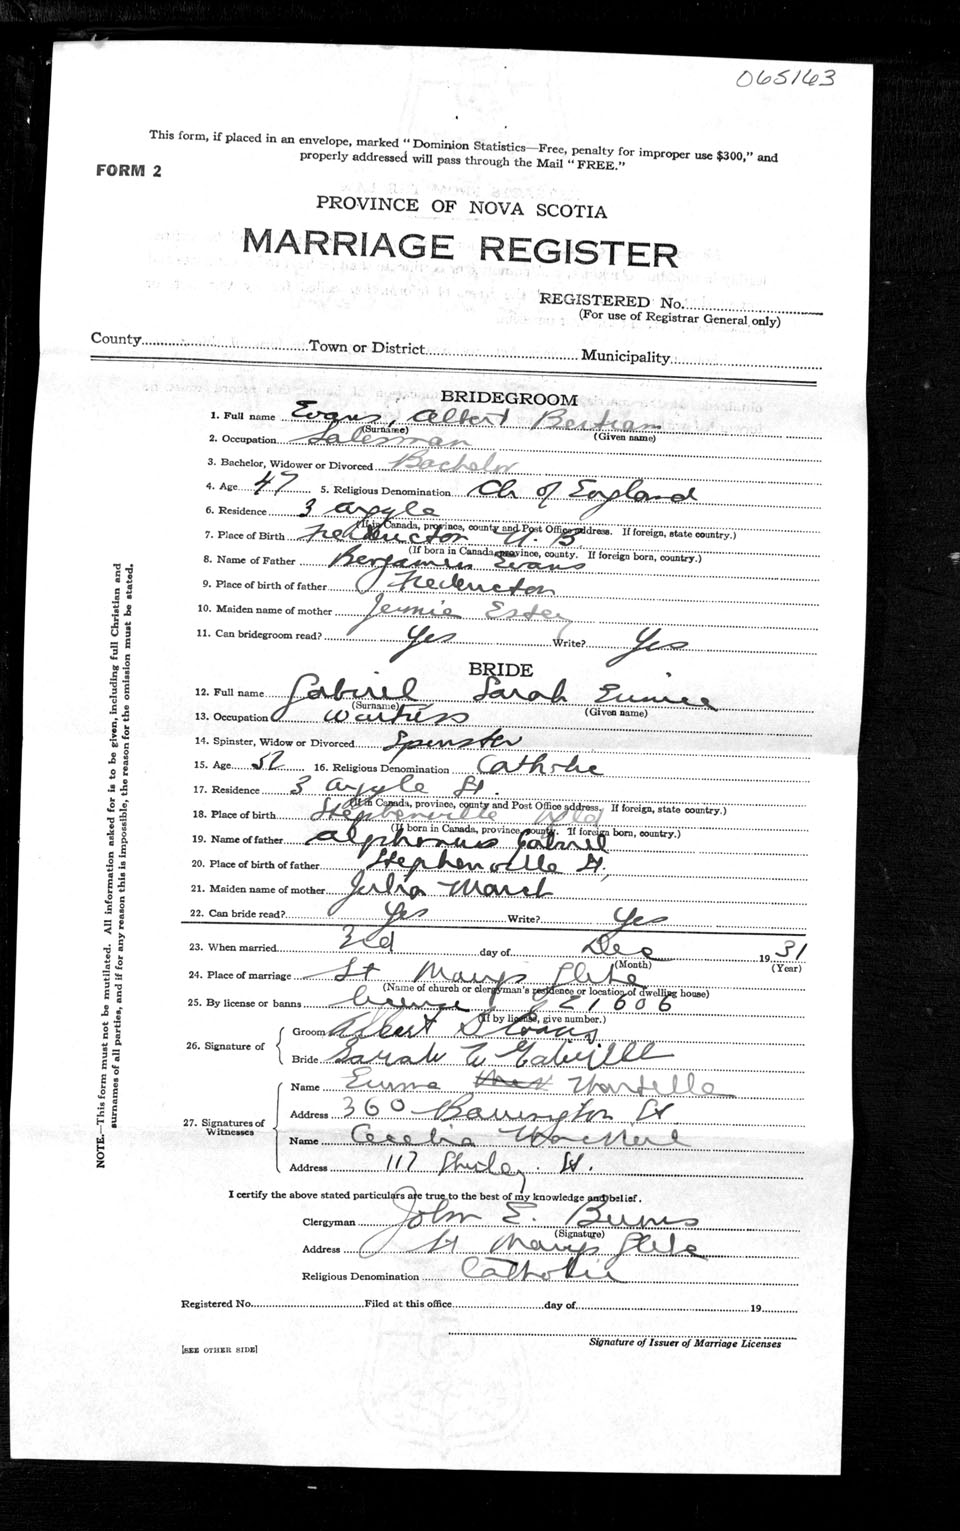 065163
This form, if placed in an envelope, marked "Dominion Statistics—Free, penalty for improper use $300," and
properly addressed will pass through the Mail "FREE."
FORM 2
PROVINCE OF NOVA SCOTIA
MARRIAGE REGISTER
REGISTERED No.
(For use of Registrar General only)
County Town or District Municipality
BRIDEGROOM
1. Full name Evans, Albert Bertram
(Surname) (Given name)
2. Occupation Salesman
3. Bachelor, Widower or Divorced Bachelor
4. Age 47 5. Religious Denomination Ch of England
6. Residence 3 Argyle
(If in Canada, province, county and Post Office address. If foreign, state country.)
7. Place of Birth Fredericton N.B
(If born in Canada, province, county. If foreign born, country.)
8. Name of Father Benjamin Evans
9. Place of birth of father Fredericton
10. Maiden name of mother Jennie Estey
11. Can bridegroom read? Yes Write? Yes
BRIDE
12. Full name Gabriel Sarah Eunice
(Surname) (Given name)
13. Occupation Waitress
14. Spinster, Widow or Divorced Spinster
15. Age 52 16. Religious Denomination Catholic
17. Residence 3 Argyle St.
(If in Canada, province, county and Post Office address. If foreign, state country.)
18. Place of birth Stephenville Nfld
(If born in Canada, province, county. If foreign born, country.)
19. Name of father Alphonsus Gabriel
20. Place of birth of father Stephenville
21. Maiden name of mother Julia March
22. Can bride read? Yes Write? Yes
23. When married 3rd day of Dec 1931
(Month) (Year)
24. Place of marriage St Marys Glebe
(Name of church or clergyman's residence or location of dwelling house)
25. By license or banns license 21606
(If by license, give number.)
26. Signature of
Groom Albert Evans
Bride Sarah E Gabrielle
27. Signatures of Witnesses
Name Emma
Address 360 Barrington St
Name Cecelia MacNeil
Address 117 Shirley St.
I certify the above stated particulars are true to the best of my knowledge and belief.
Clergyman John E. Burns
(Signature)
Address St Marys Glebe
Religious Denomination Catholic
Registered No. Filed at this office day of 19
Signature of Issuer of Marriage Licenses
[SEE OTHER SIDE]
NOTE.—This form must not be mutilated. All information asked for is to be given, including full Christian and
surnames of all parties, and if for any reason this is impossible, the reason for the omission must be stated.